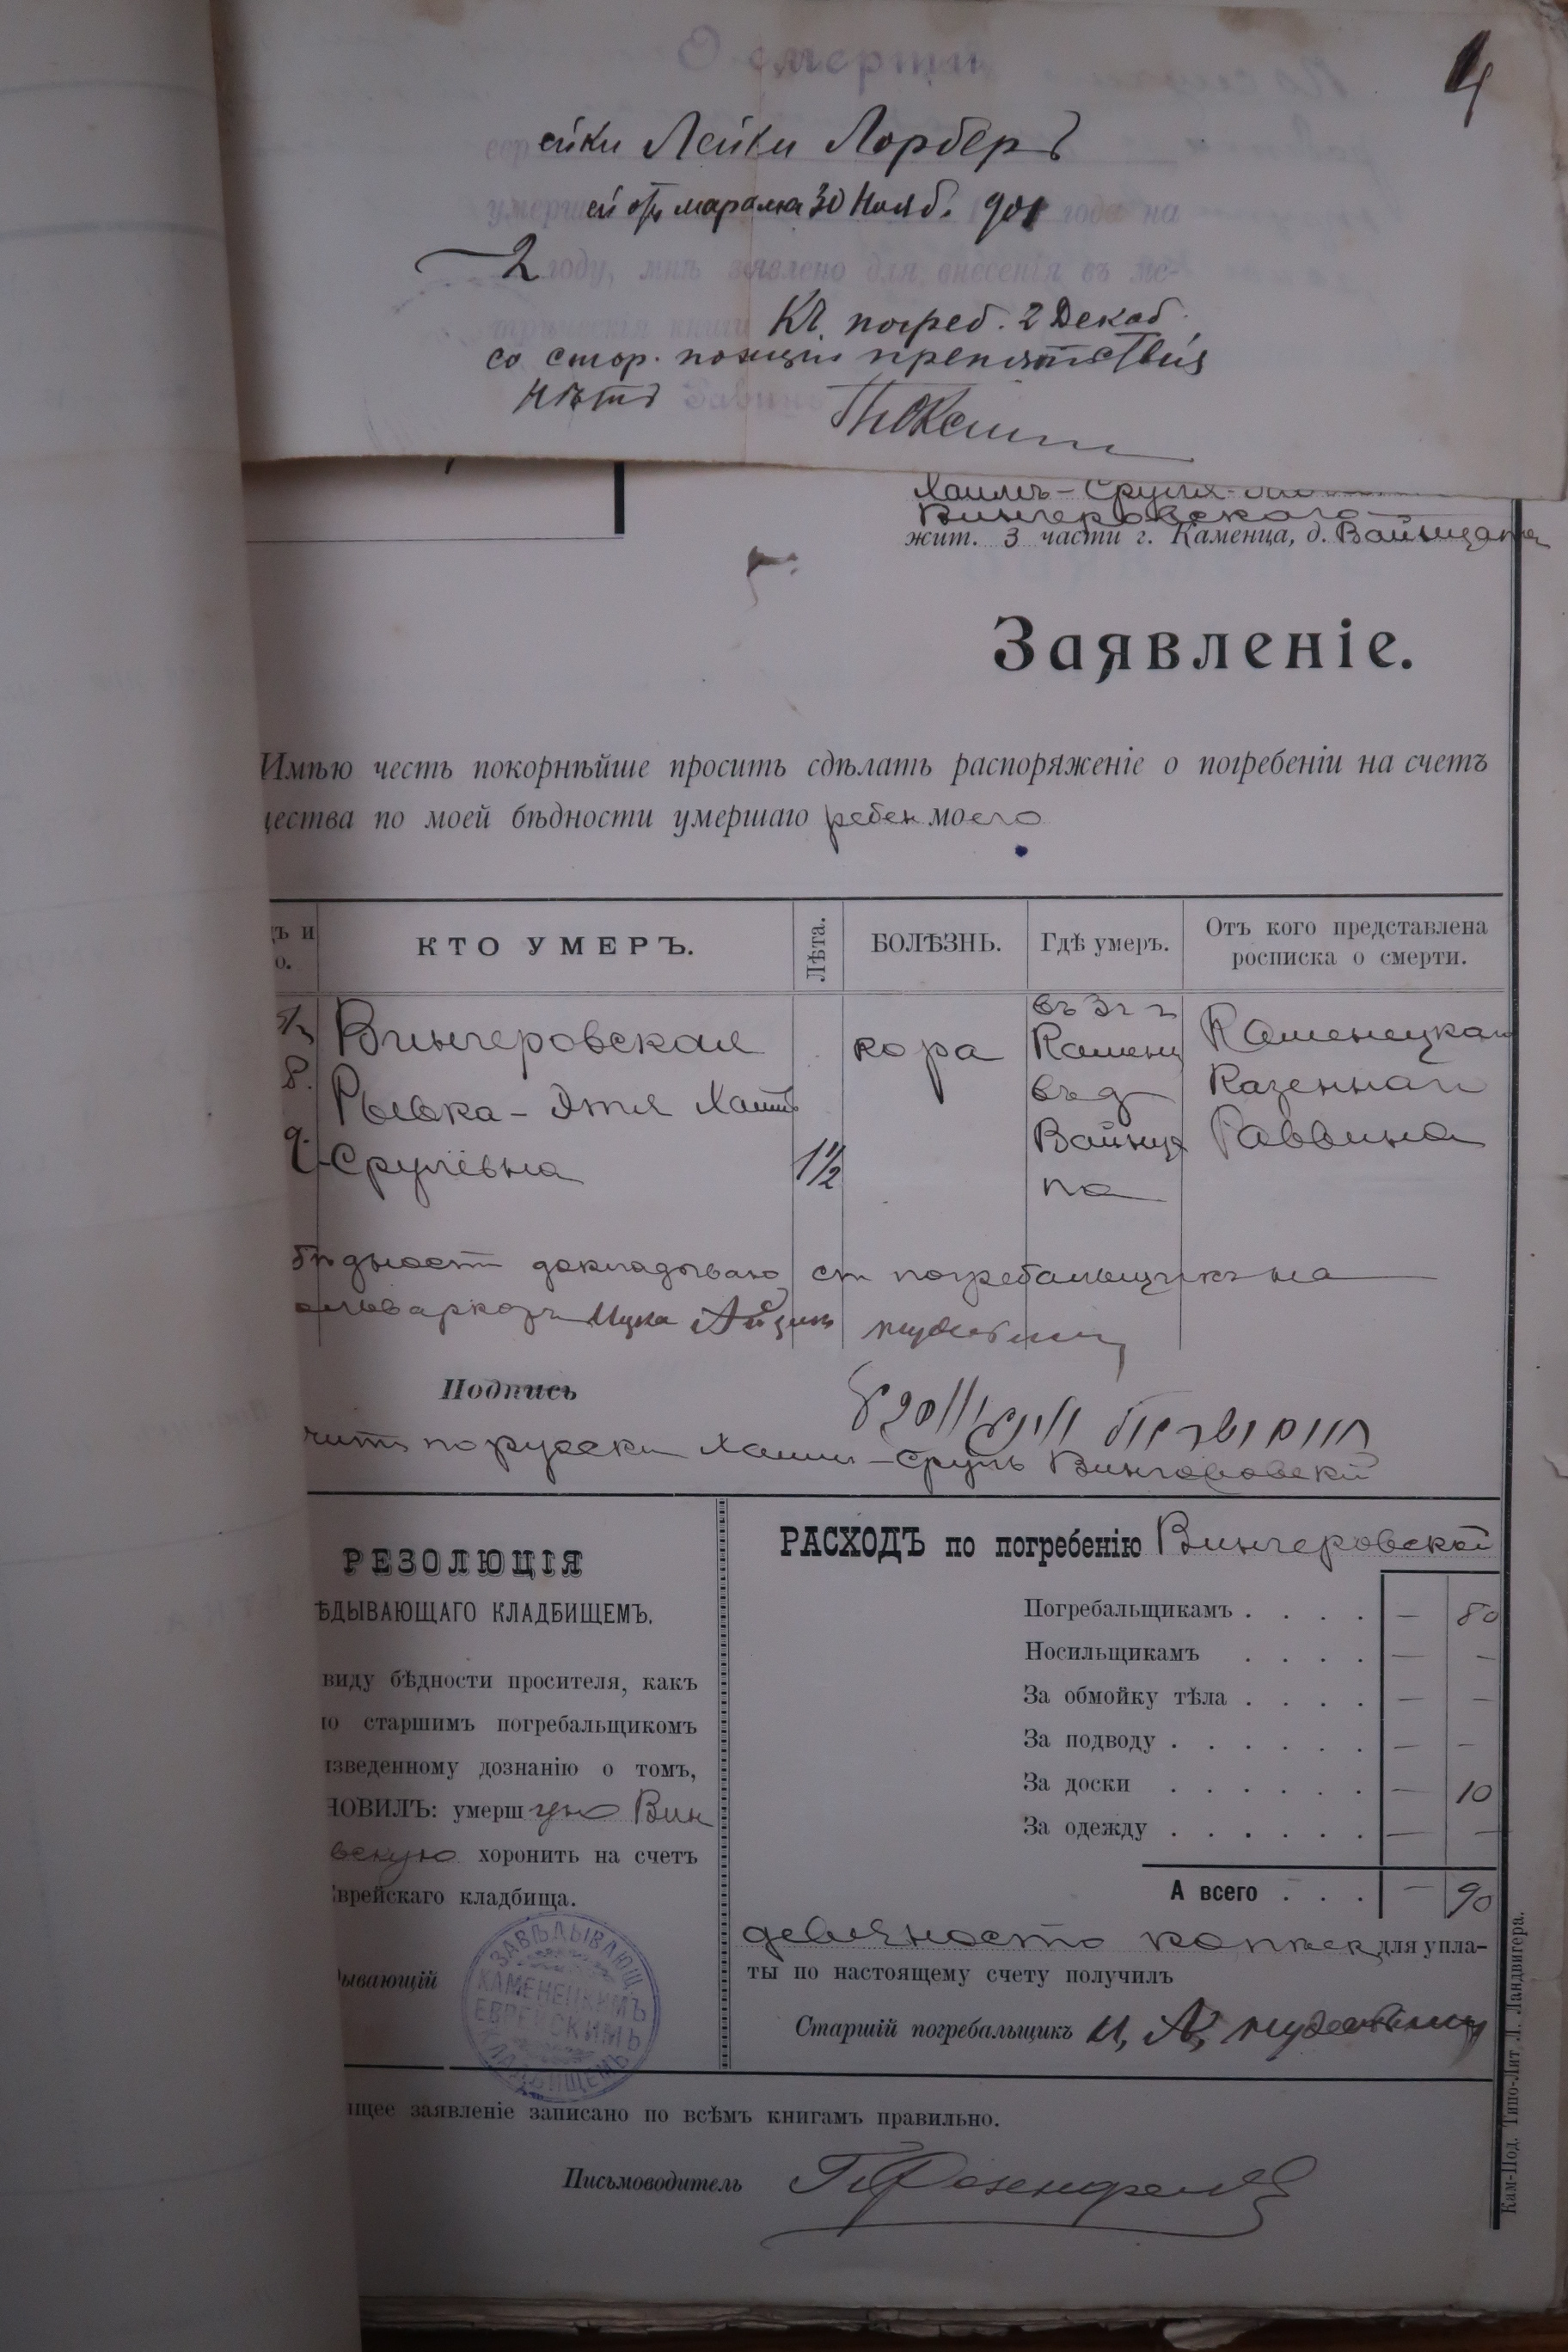 О смерти
4
ейки Лейки Лорберъ
умерш ей отъ марасма 30 Нояб. 901 года на
2 году, мнѣ заявлено для внесенія въ ме-
трическія книги Къ погреб. 2 Декаб.
со стор. полиціи препятствія
нѣтъ
Хаимъ-Сруля
Вингеровскаго
жит. 3 части г. Каменца, д. Вайнцапа
Заявленіе.
Имѣю честь покорнѣйше просить сдѣлать распоряженіе о погребеніи на счетъ
щества по моей бѣдности умершаго ребен моего
ъ и
о.
КТО УМЕРЪ.
Лѣта.
БОЛѢЗНЬ.
Гдѣ умеръ.
Отъ кого представлена
росписка о смерти.
Вингеровская
Рывка-Этя Хаимъ
Срулевна
1 1/2
кора
въ 3 ч г
Каменц
въ д
Вайнца
па
Каменецкаго
Казеннаго
Раввина
бѣдност докладываю ст погребальщикъ на
Ицка Айзикъ
Подпись
по русски Хаимъ-Сруль Вингеровскій
РЕЗОЛЮЦІЯ
ѢДЫВАЮЩАГО КЛАДБИЩЕМЪ.
виду бѣдности просителя, какъ
ю старшимъ погребальщикомъ
изведенному дознанію о томъ,
НОВИЛЪ: умерш ую Вин
вскую хоронить на счетъ
Еврейскаго кладбища.
дывающій
ЗАВѢДЫВАЮЩ.
КАМЕНЕЦКИМЪ
ЕВРЕЙСКИМЪ
КЛАДБИЩЕМЪ
РАСХОДЪ по погребенію Вингеровской
Погребальщикамъ . . . . — 80
Носильщикамъ . . . . — —
За обмойку тѣла . . . . — —
За подводу . . . . . . — —
За доски . . . . . . — 10
За одежду . . . . . . — —
А всего . . . — 90
девяносто копѣек для упла-
ты по настоящему счету получилъ
Старшій погребальщикъ И. А.
ящее заявленіе записано по всѣмъ книгамъ правильно.
Письмоводитель
Кам-Под. Типо-Лит. Л. Ландвигера.